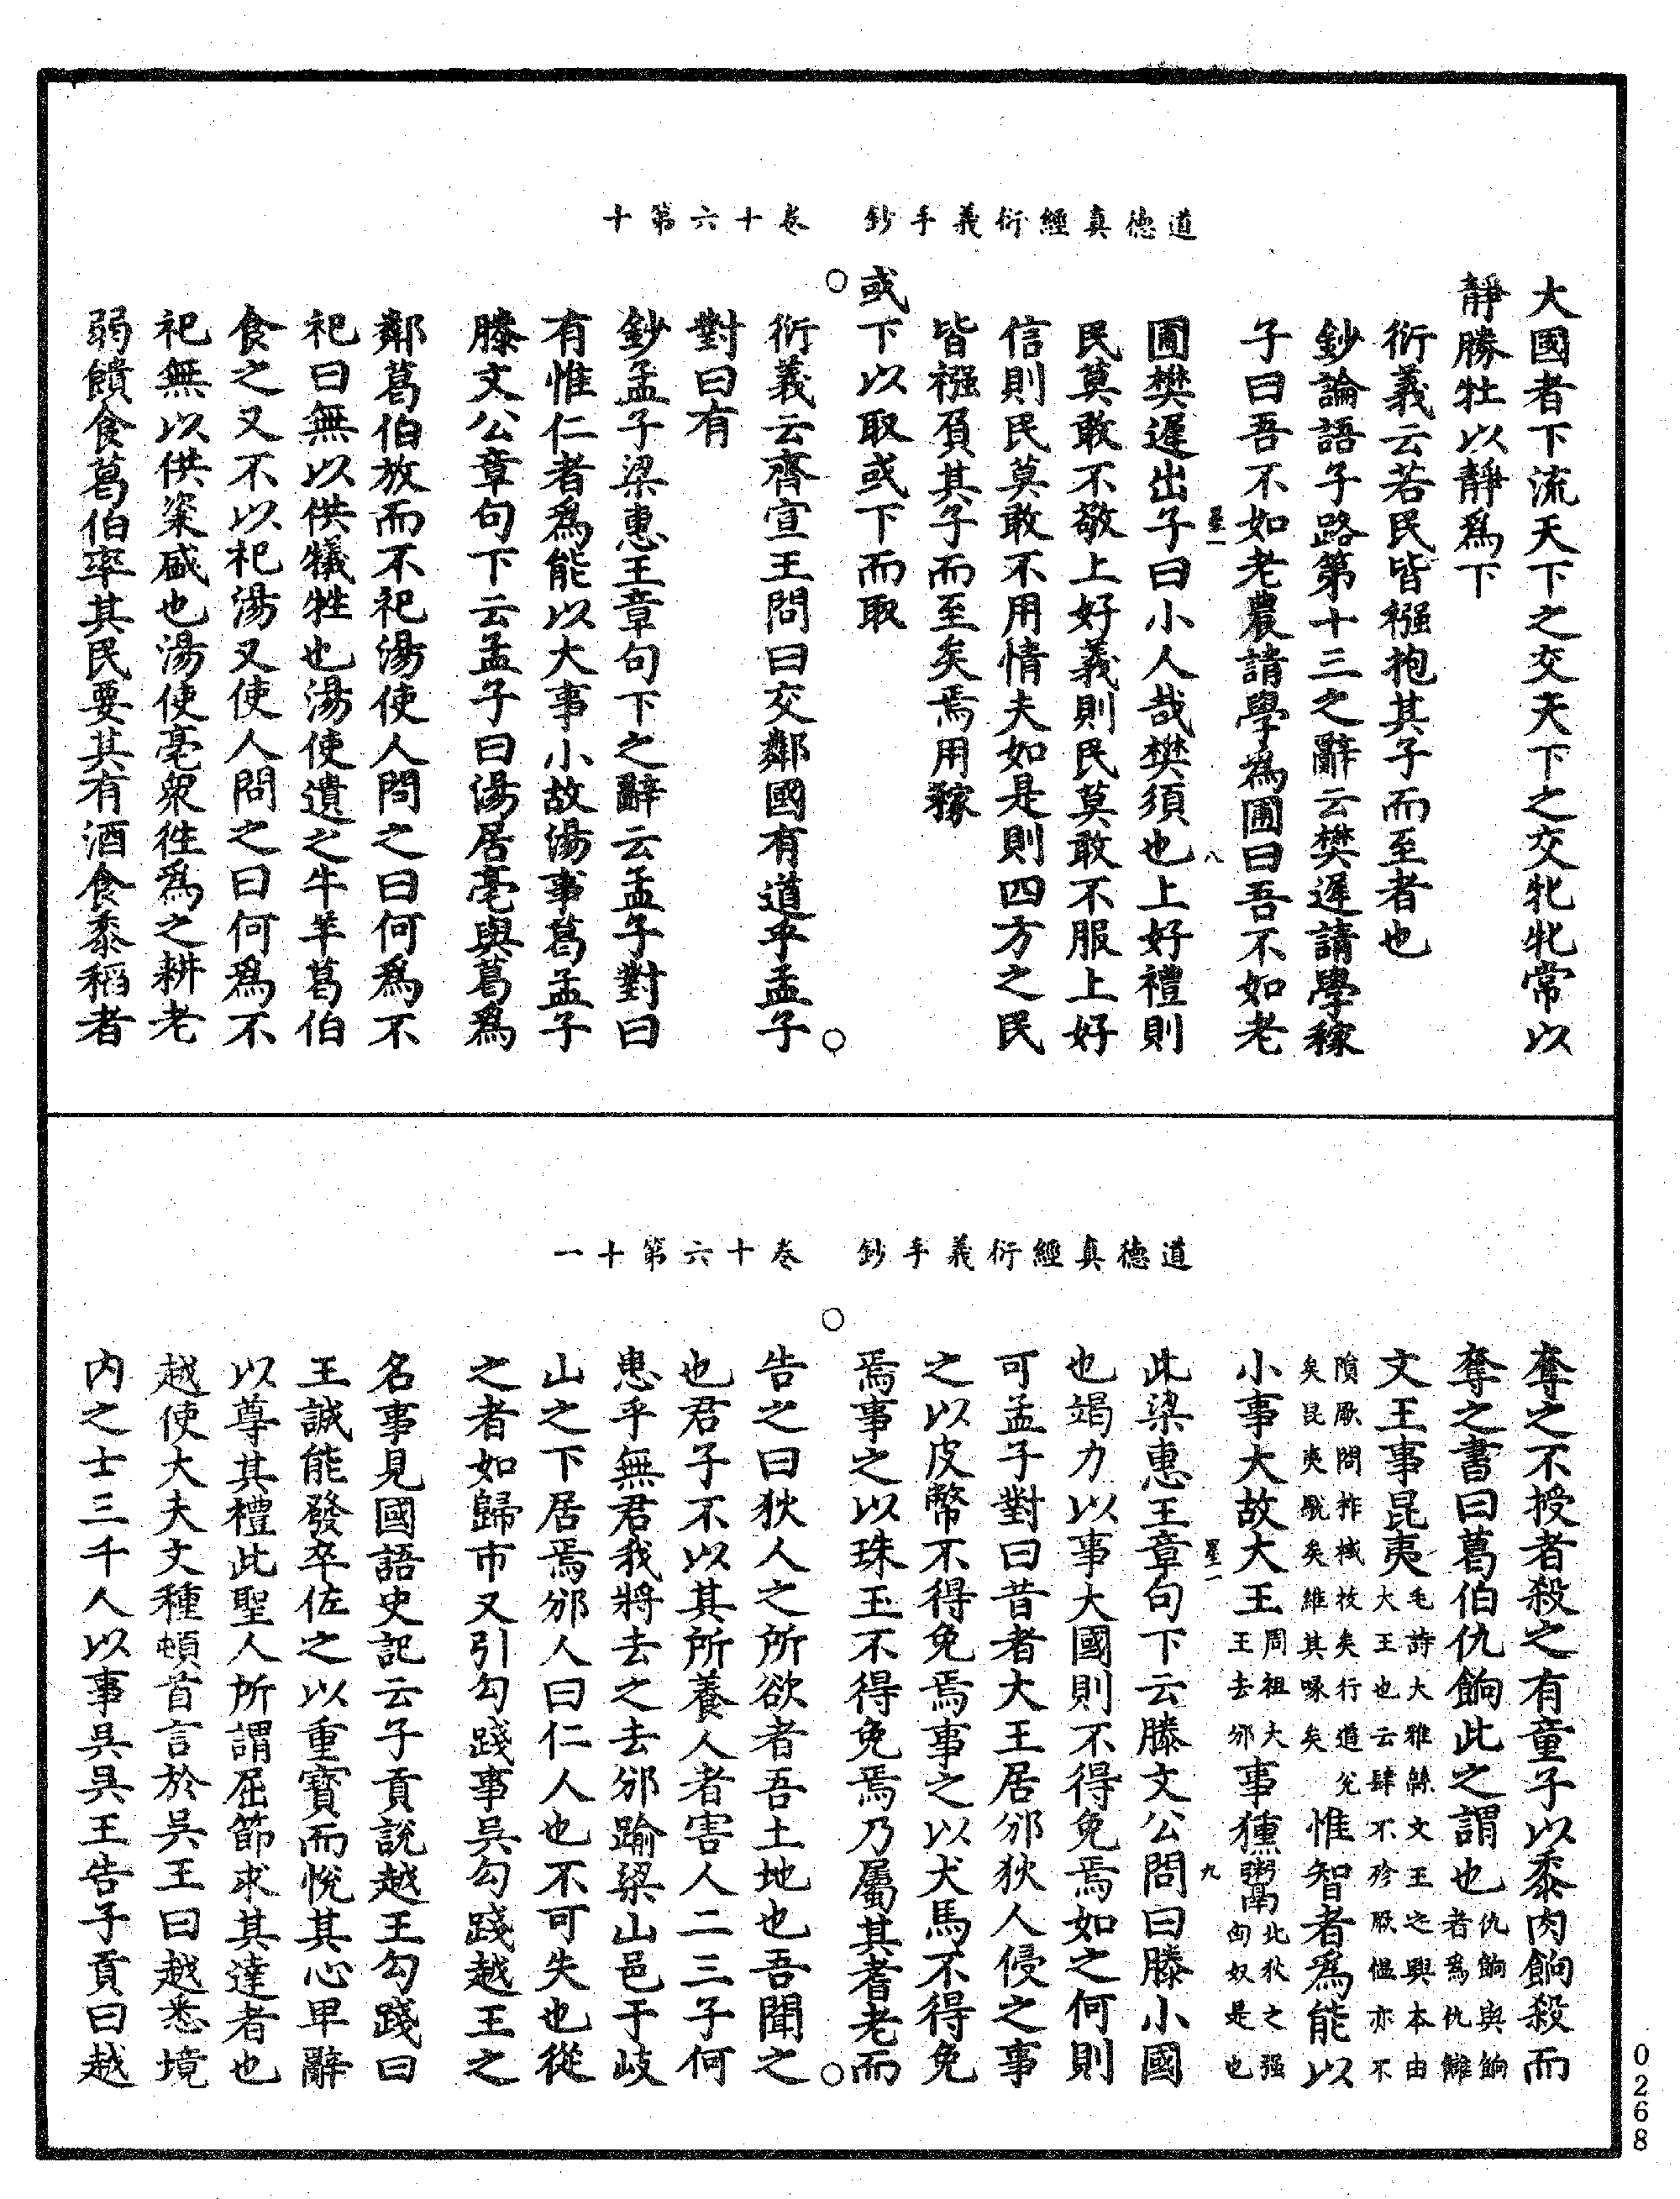 道德真經衍義手鈔　卷十六第十
大國者下流天下之交天下之交牝牝常以
靜勝牡以靜爲下
衍義云若民皆襁抱其子而至者也
鈔論語子路第十三之辭云樊遲請學稼
子曰吾不如老農請學爲圃曰吾不如老
星一　八
圃樊遲出子曰小人哉樊須也上好禮則
民莫敢不敬上好義則民莫敢不服上好
信則民莫敢不用情夫如是則四方之民
皆襁負其子而至矣焉用稼
或下以取或下而取
衍義云齊宣王問曰交鄰國有道乎孟子
對曰有
鈔孟子梁惠王章句下之辭云孟子對曰
有惟仁者爲能以大事小故湯事葛孟子
滕文公章句下云孟子曰湯居亳與葛爲
鄰葛伯放而不祀湯使人問之曰何爲不
祀曰無以供犧牲也湯使遺之牛羊葛伯
食之又不以祀湯又使人問之曰何爲不
祀無以供粢盛也湯使亳衆徃爲之耕老
弱饋食葛伯率其民要其有酒食黍稻者
道德真經衍義手鈔　卷十六第十一
奪之不授者殺之有童子以黍肉餉殺而
奪之書曰葛伯仇餉此之謂也仇餉與餉者爲仇讎
文王事昆夷毛詩大雅緜文王之興本由大王也云肆不殄厥慍亦不
隕厥問柞棫拔矣行道兌矣昆夷駾矣維其喙矣惟智者爲能以
小事大故大王周祖大王去邠事獯鬻此狄之强匈奴是也
星一　九
此梁惠王章句下云滕文公問曰滕小國
也竭力以事大國則不得免焉如之何則
可孟子對曰昔者大王居邠狄人侵之事
之以皮幣不得免焉事之以犬馬不得免
焉事之以珠玉不得免焉乃屬其耆老而
告之曰狄人之所欲者吾土地也吾聞之
也君子不以其所養人者害人二三子何
患乎無君我將去之去邠踰梁山邑于岐
山之下居焉邠人曰仁人也不可失也從
之者如歸市又引勾踐事吳勾踐越王之
名事見國語史記云子貢說越王勾踐曰
王誠能發卒佐之以重寳而悅其心卑辭
以尊其禮此聖人所謂屈節求其達者也
越使大夫文種頓首言於吳王曰越悉境
内之士三千人以事吳吳王告子貢曰越
0268